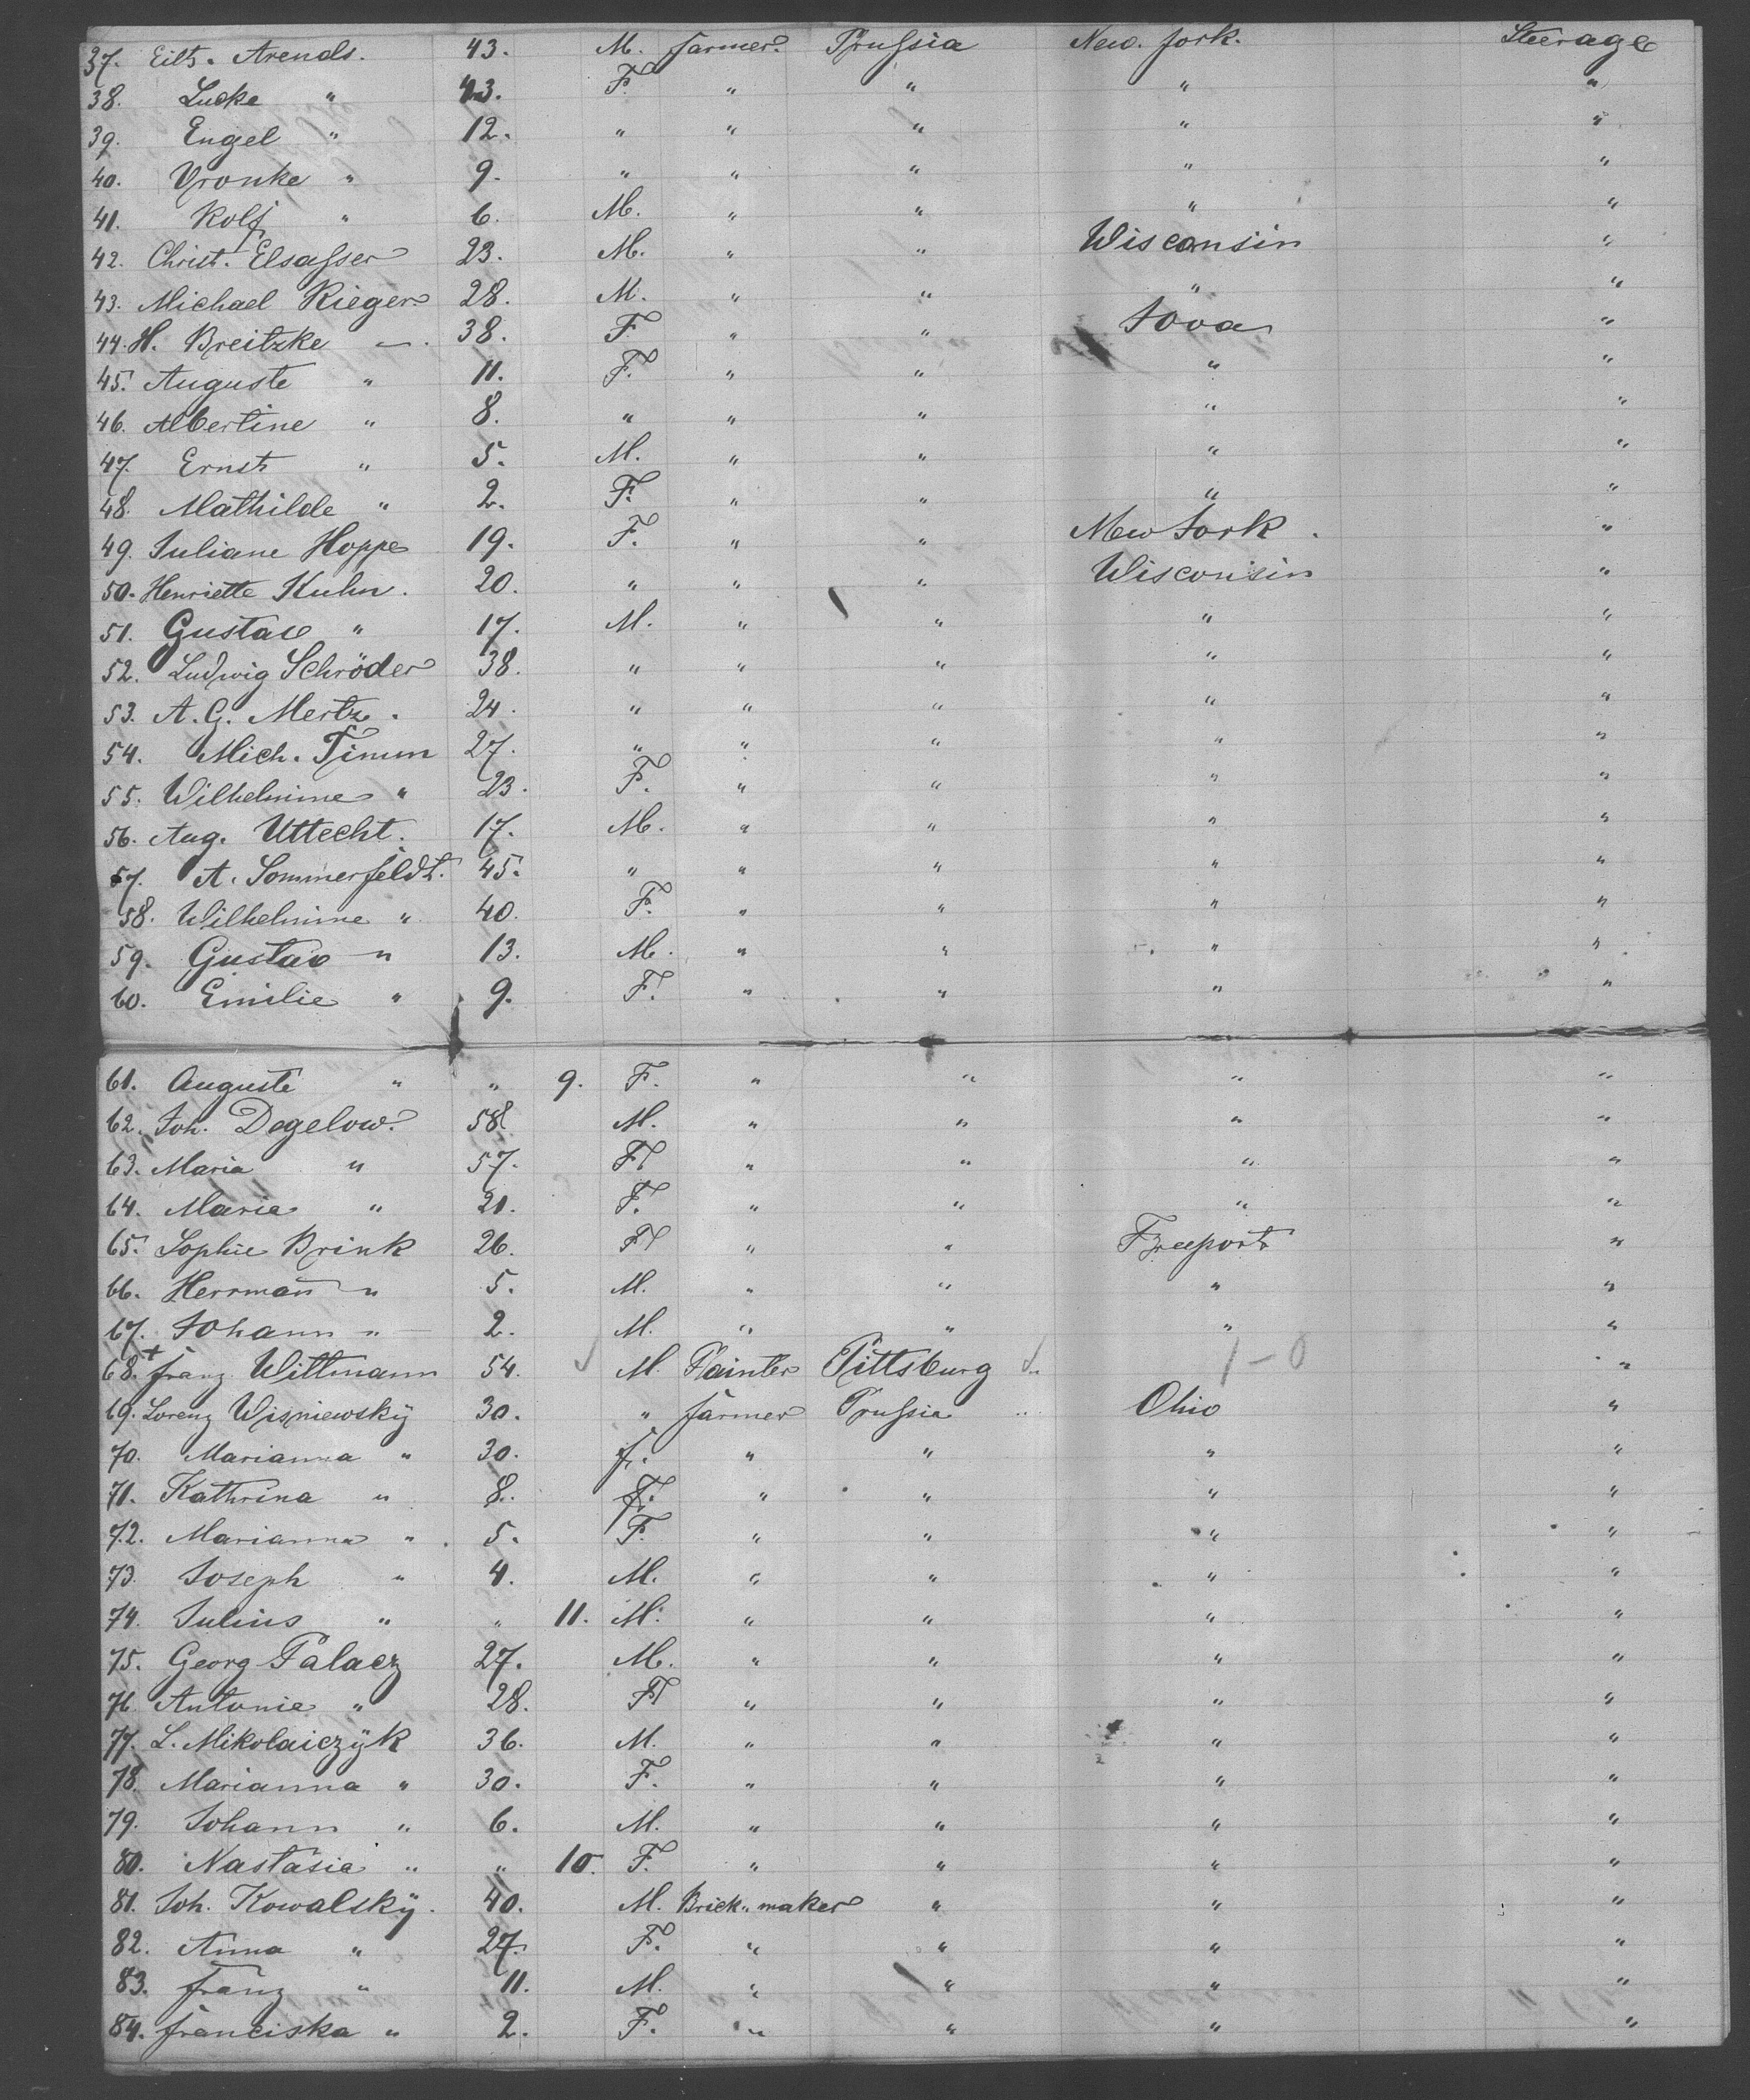 37. Eilt. Arends. 43. M. farmer. Prußia New. York. Steerage
38. Lucke " 43. F. " " " "
39. Engel " 12. " " " " "
40. Vronke " 9. " " " " "
41. Rolf " 6. M. " " " "
42. Christ. Elsaßer 23. M. " " Wisconsin "
43. Michael Rieger 28. M. " " " "
44. H. Breitzke — . 38. F " " Iova "
45. Auguste " 11. F. " " " "
46. Albertine " 8. " " " " "
47. Ernst " 5. M. " " " "
48. Mathilde " 2. F. " " " "
49. Juliane Hoppe 19. F. " " New York . "
50. Henriette Kuhn. 20. " " " Wisconsin "
51. Gustav " 17. M. " " " "
52. Ludwig Schröder 38. " " " " "
53. A. G. Mertz. 24. " " " " "
54. Mich. Timm 27. " " " " "
55. Wilhelmine " 23. F. " " " "
56. Aug. Uttecht. 17. M. " " " "
57. A. Sommerfeldt. 45. " " " " "
58. Wilhelmine " 40. F. " " " "
59. Gustav " 13. M. " " " "
60. Emilie " 9. F. " " " "
61. Auguste " " 9. F. " " " "
62. Joh. Degelow. 58. M. " " " "
63. Maria " 57. F. " " " "
64. Maria " 21. F. " " " "
65. Sophie Brink 26. F " " Freeport "
66. Hermañ " 5. M. " " " "
67. Johann " 2. M. " " " "
68. + Franz Wittmann 54. ✓ M. Painter Pittsburg ✓ " 1-0 "
69. Lorenz Wisniewskÿ 30. " farmer Prußia " Ohio "
70. Marianna " 30. f. " " " "
71. Kathrina " 8. F. " " " "
72. Marianna " 5. F. " " " "
73. Joseph " 4. M. " " " "
74. Julius " " 11. M. " " " "
75. Georg Palacz 27. M. " " " "
76. Antonie " 28. F " " " "
77. L. Mikolaiczÿk 36. M. " " " "
78. Marianna " 30. F. " " " "
79. Johann " 6. M. " " " "
80. Nastasia " " 10. F. " " " "
81. Joh. Kowalskÿ. 40. M. Brick" maker " " "
82. Anna " 27. F. " " " "
83. Franz " 11. M. " " " "
84. Franciska " 2. F. " " " "